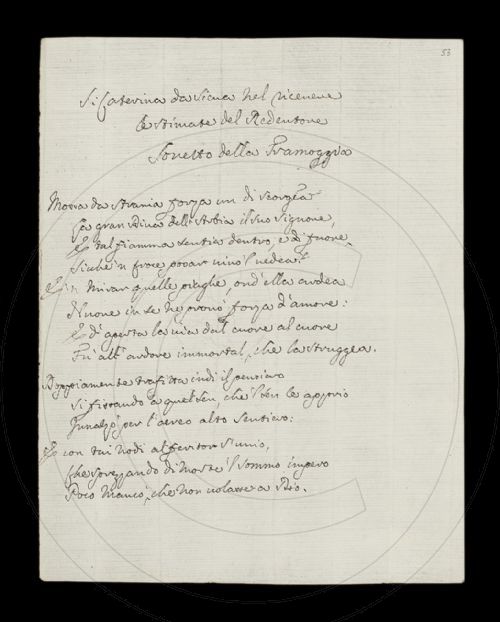 53
S. Caterina da Siena nel ricevere
le stimate del Redentore
Sonetto della Framoggia
Mossa da strania forza un dì scorgea
La gran Edina dell' Arbia il suo Signore,
E tal fiamma sentia dentro, e di fuore,
Siche 'n croce posar vivo 'l vedea.
E in mirar quelle piaghe, ond' ella ardea
Di nuove in se ne provò forza d'amore:
E d' aperta la via dal cuore al cuore
Fu all' ardore immortal, che la struggea.
Doppiamente trafitta indi il pensiero
Si fissando a quel ben, che 'l ben le aprio
Innalzò per l'aereo alto sentiero:
E con tai nodi al feritor s' unio,
Che sprezzando di Morte 'l sommo impero
Poco mancò, che non volasse a Dio.